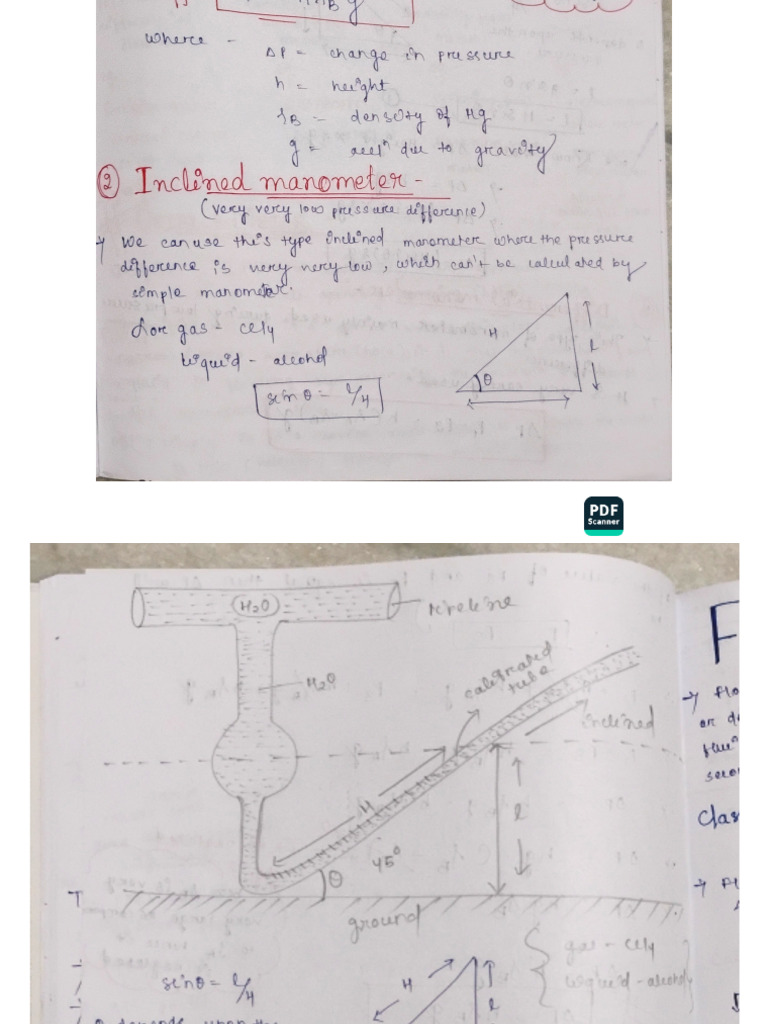 where -
ΔP = change in pressure
h = height
ρB = density of Hg
g = accⁿ due to gravity
② Inclined manometer -
(very very low pressure difference)
→ We can use this type inclined manometer where the pressure
difference is very very low, which can't be calculated by
simple manometer.
for gas - ccl4
liquid - alcohol
sin θ = l/H
H
l
θ
PDF
Scanner
H2O
Pipeline
H2O
calibrated
tube
inclined
H
l
θ
45°
ground
T
sinθ = l/H
H
l
gas - ccl4
liquid - alcohol
θ depends upon the
F
→ Flo
or d
flui
seco
Clas
→ Fl